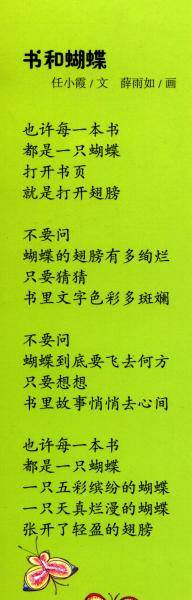 书和蝴蝶
任小霞/文 薛雨如/画
也许每一本书
都是一只蝴蝶
打开书页
就是打开翅膀
不要问
蝴蝶的翅膀有多绚烂
只要猜猜
书里文字色彩多斑斓
不要问
蝴蝶到底要飞去何方
只要想想
书里故事悄悄去心间
也许每一本书
都是一只蝴蝶
一只五彩缤纷的蝴蝶
一只天真烂漫的蝴蝶
张开了轻盈的翅膀